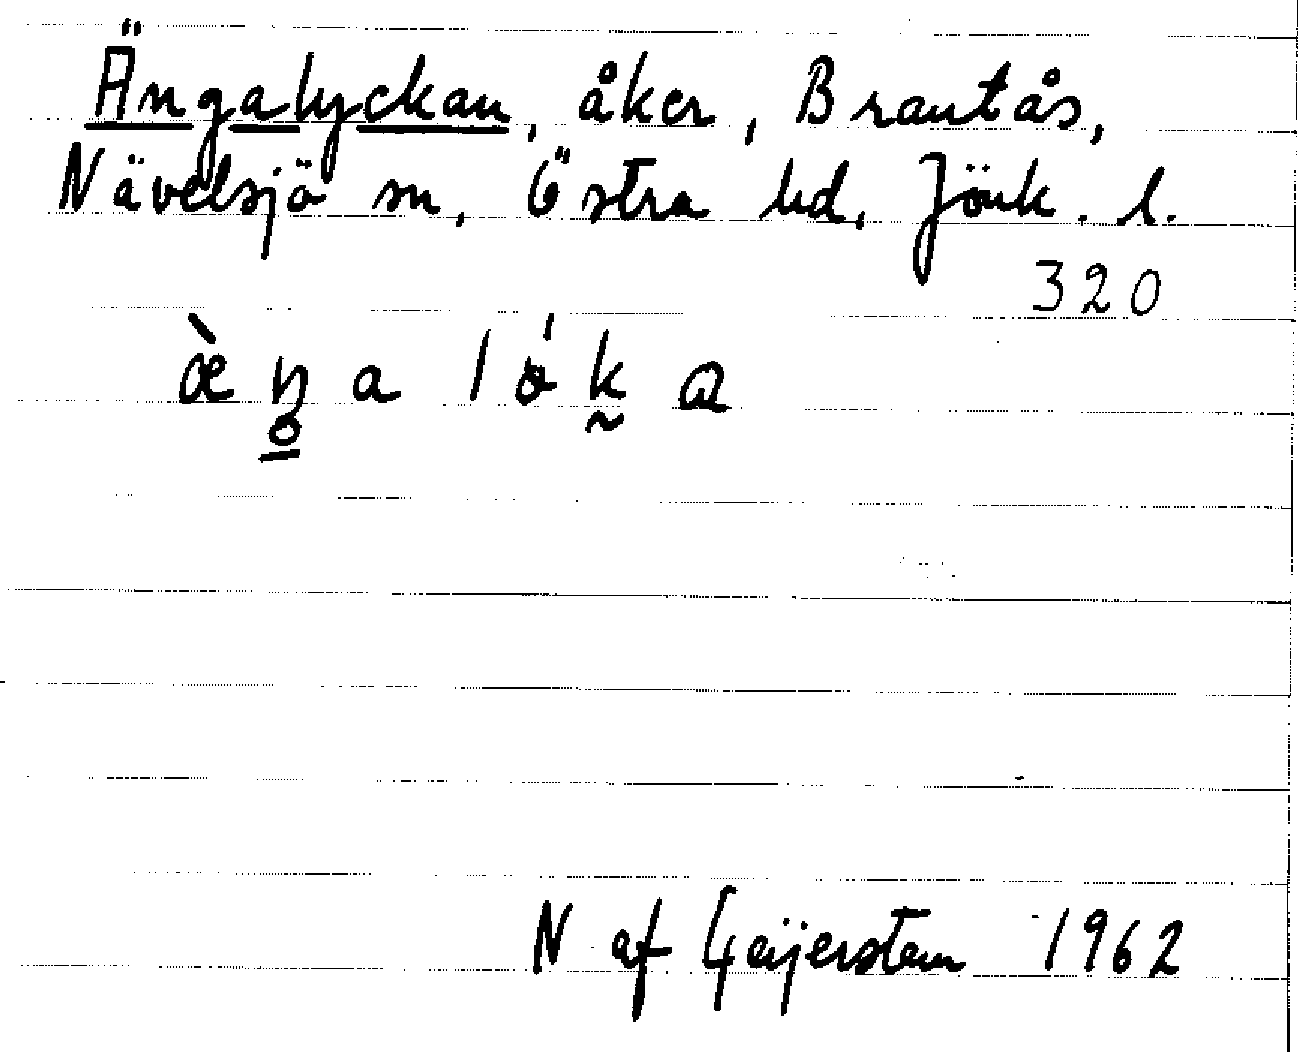 Ängalyckan, åker, Brantås,
Nävelsjö sn, Östra hd, Jönk. l.
320
æ̀ŋa lók̰a
N af Geijerstam 1962